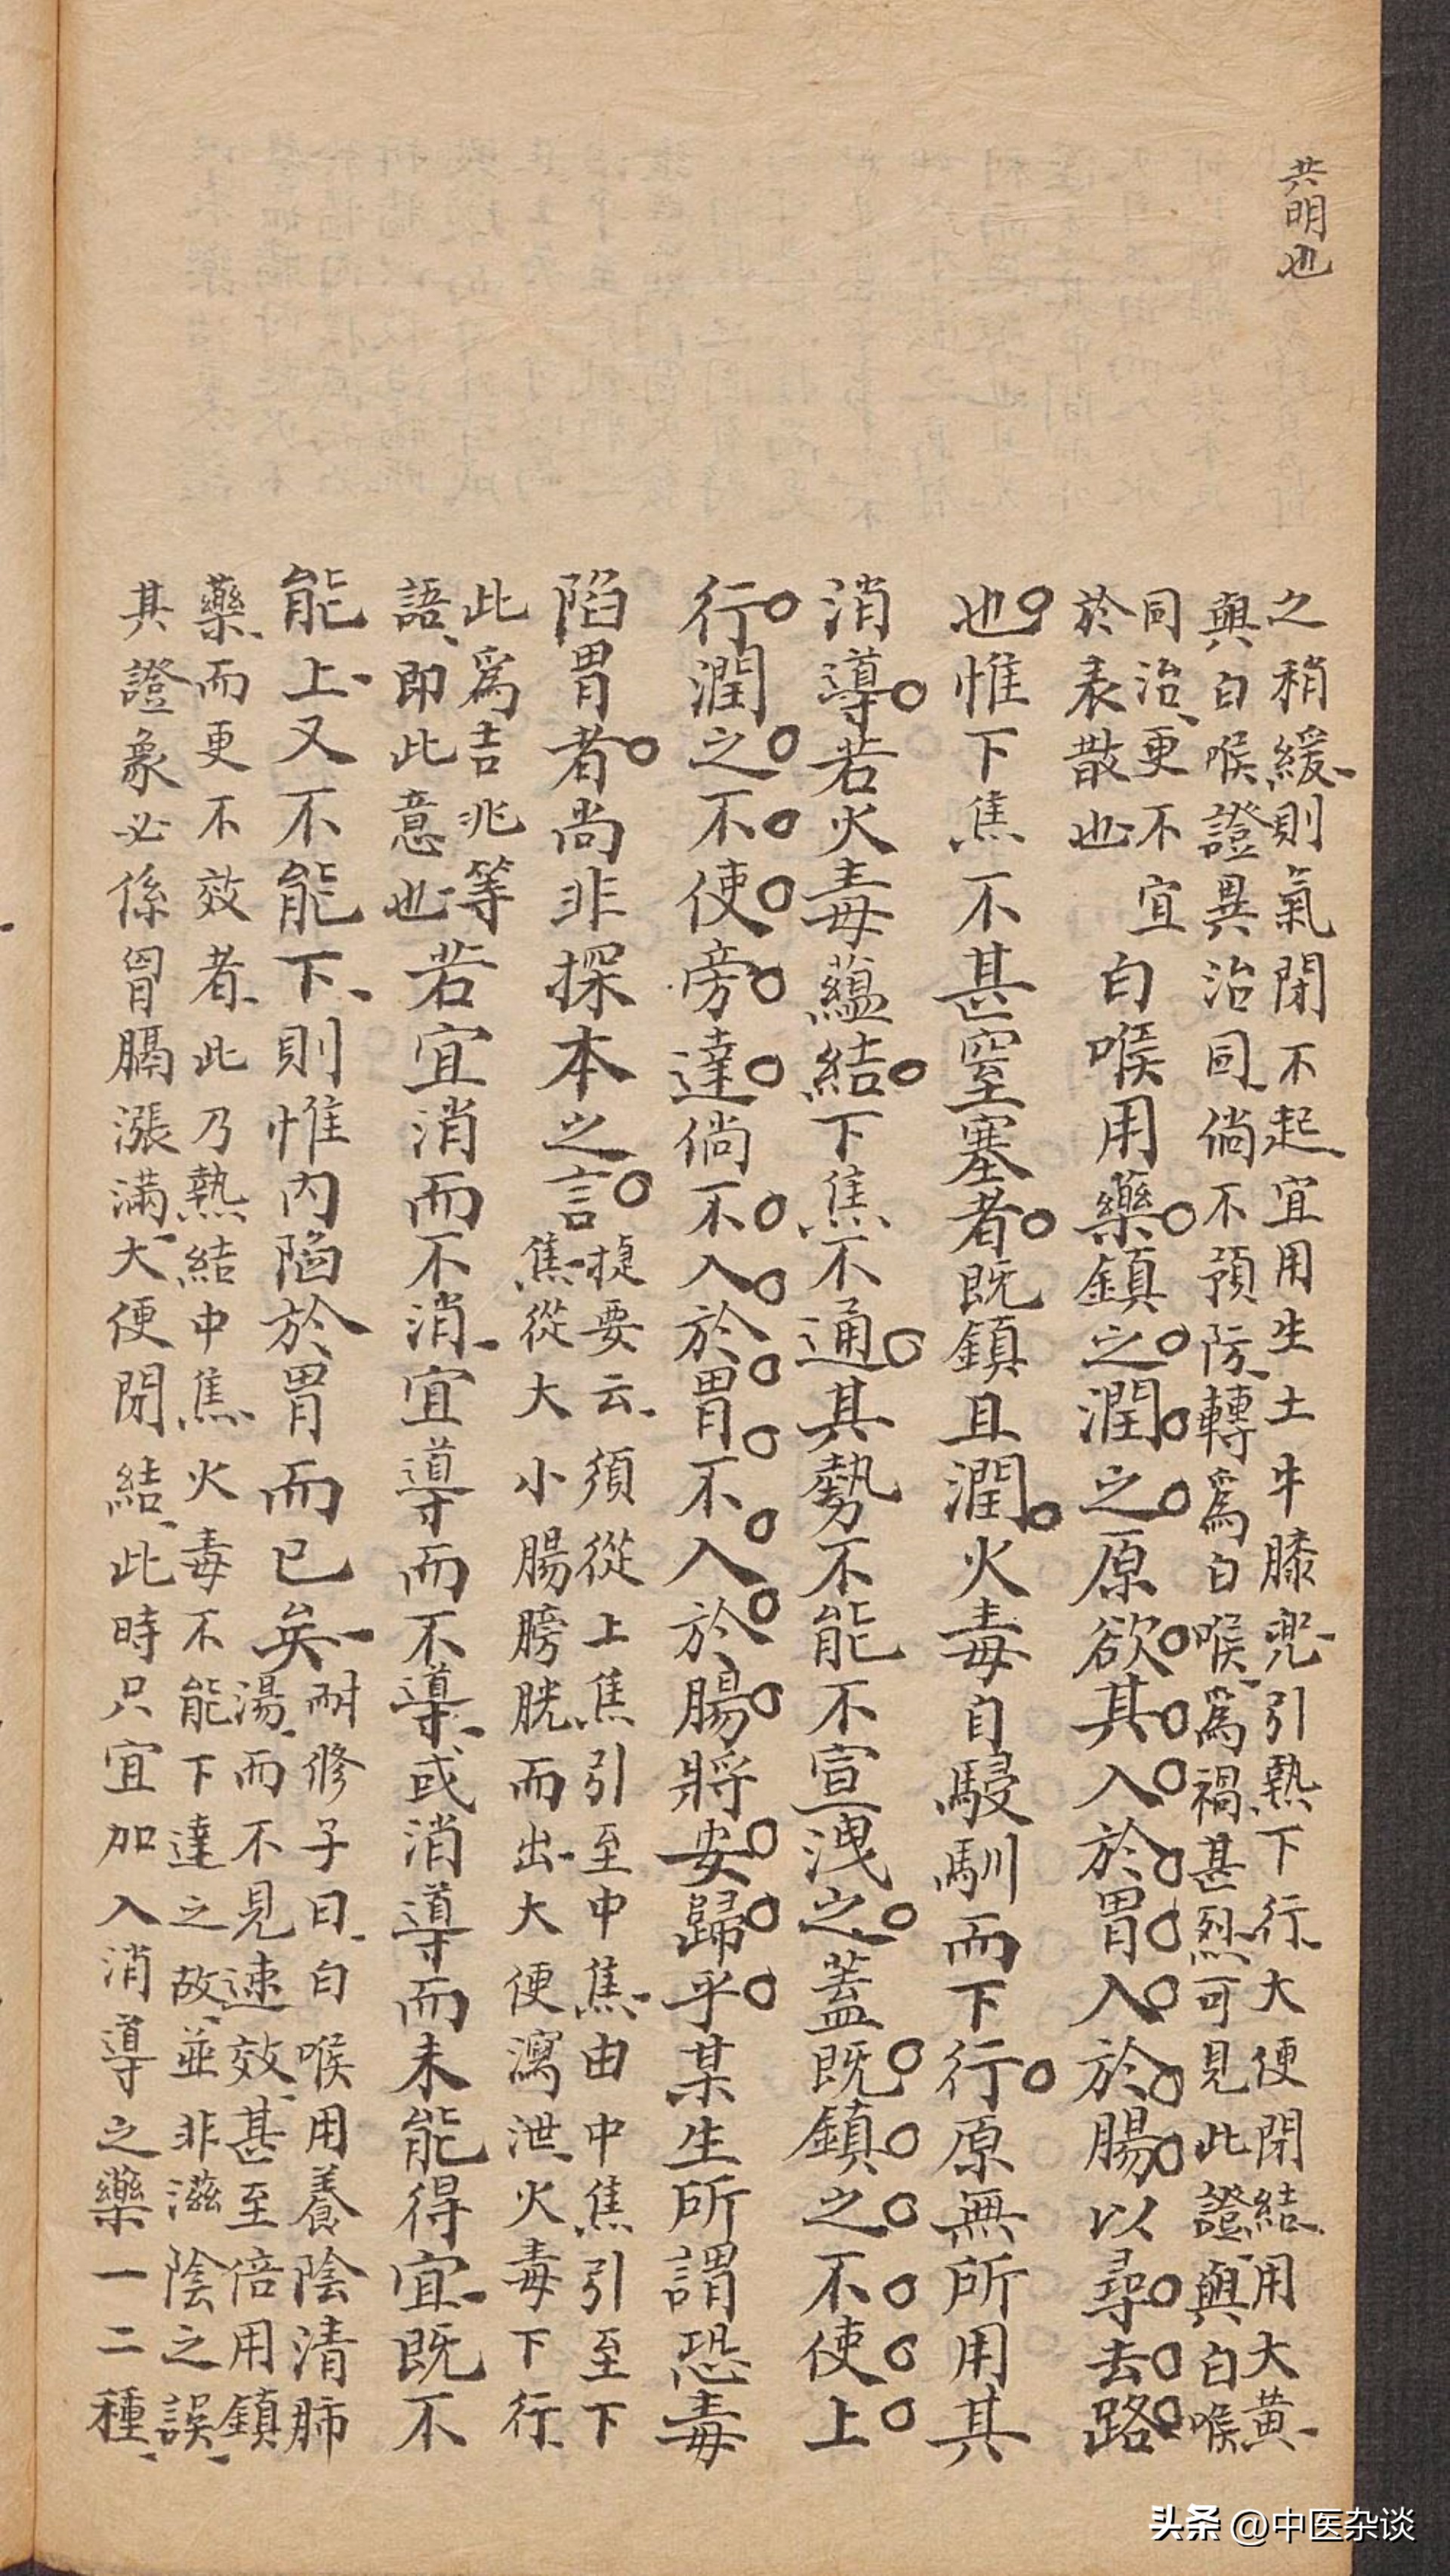 共明也
之稍緩則氣閉不起宜用生土牛膝兜引熱下行大便閉結用大黃
與白喉證異治同倘不預防轉爲白喉爲禍甚烈可見此證與白喉
同治更不宜
於表散也
白喉用藥鎮之潤之原欲其入於胃入於腸以尋去路
也惟下焦不甚窒塞者既鎮且潤火毒自駸馴而下行原無所用其
消導若火毒蘊結下焦不通其勢不能不宣洩之蓋既鎮之不使上
行潤之不使旁達倘不入於胃不入於腸將安歸乎某生所謂恐毒
陷胃者尚非探本之言
㨗要云須從上焦引至中焦由中焦引至下
焦從大小腸膀胱而出大便瀉泄火毒下行
此爲吉兆等
語即此意也
若宜消而不消宜導而不導或消導而未能得宜既不
能上又不能下則惟內陷於胃而已矣
耐修子曰白喉用養陰清肺
湯而不見速效甚至倍用鎮
藥而更不效者此乃熱結中焦火毒不能下達之故並非滋陰之誤
其證象必係胃膈漲滿大便閉結此時只宜加入消導之藥一二種
头条 @中医杂谈